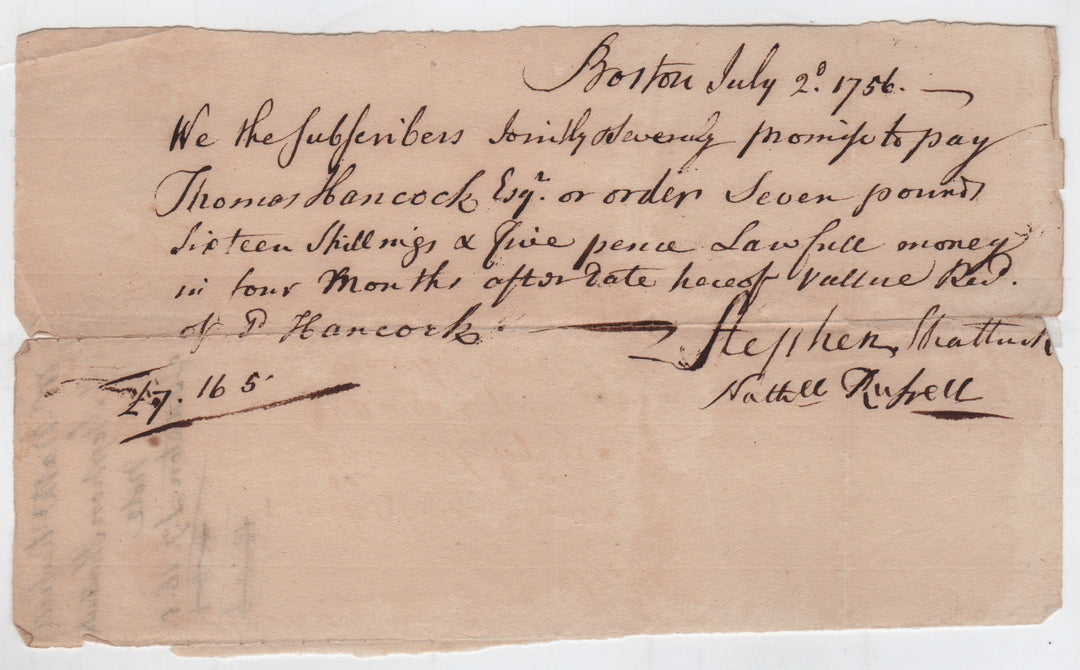 Boston July 2d. 1756.
We the Subscribers Jointly & Severaly promise to pay
Thomas Hancock Esqr. or order Seven pounds
Sixteen Shillings & five pence Lawfull money
in four Months after Date hereof Vallue Recd.
of Sd Hancock
Stephen Shattuck
£7. 16 5
Nathll Russell
Note